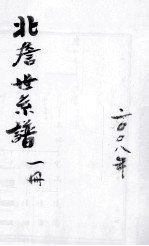 北詹世系譜一冊
二〇〇八年